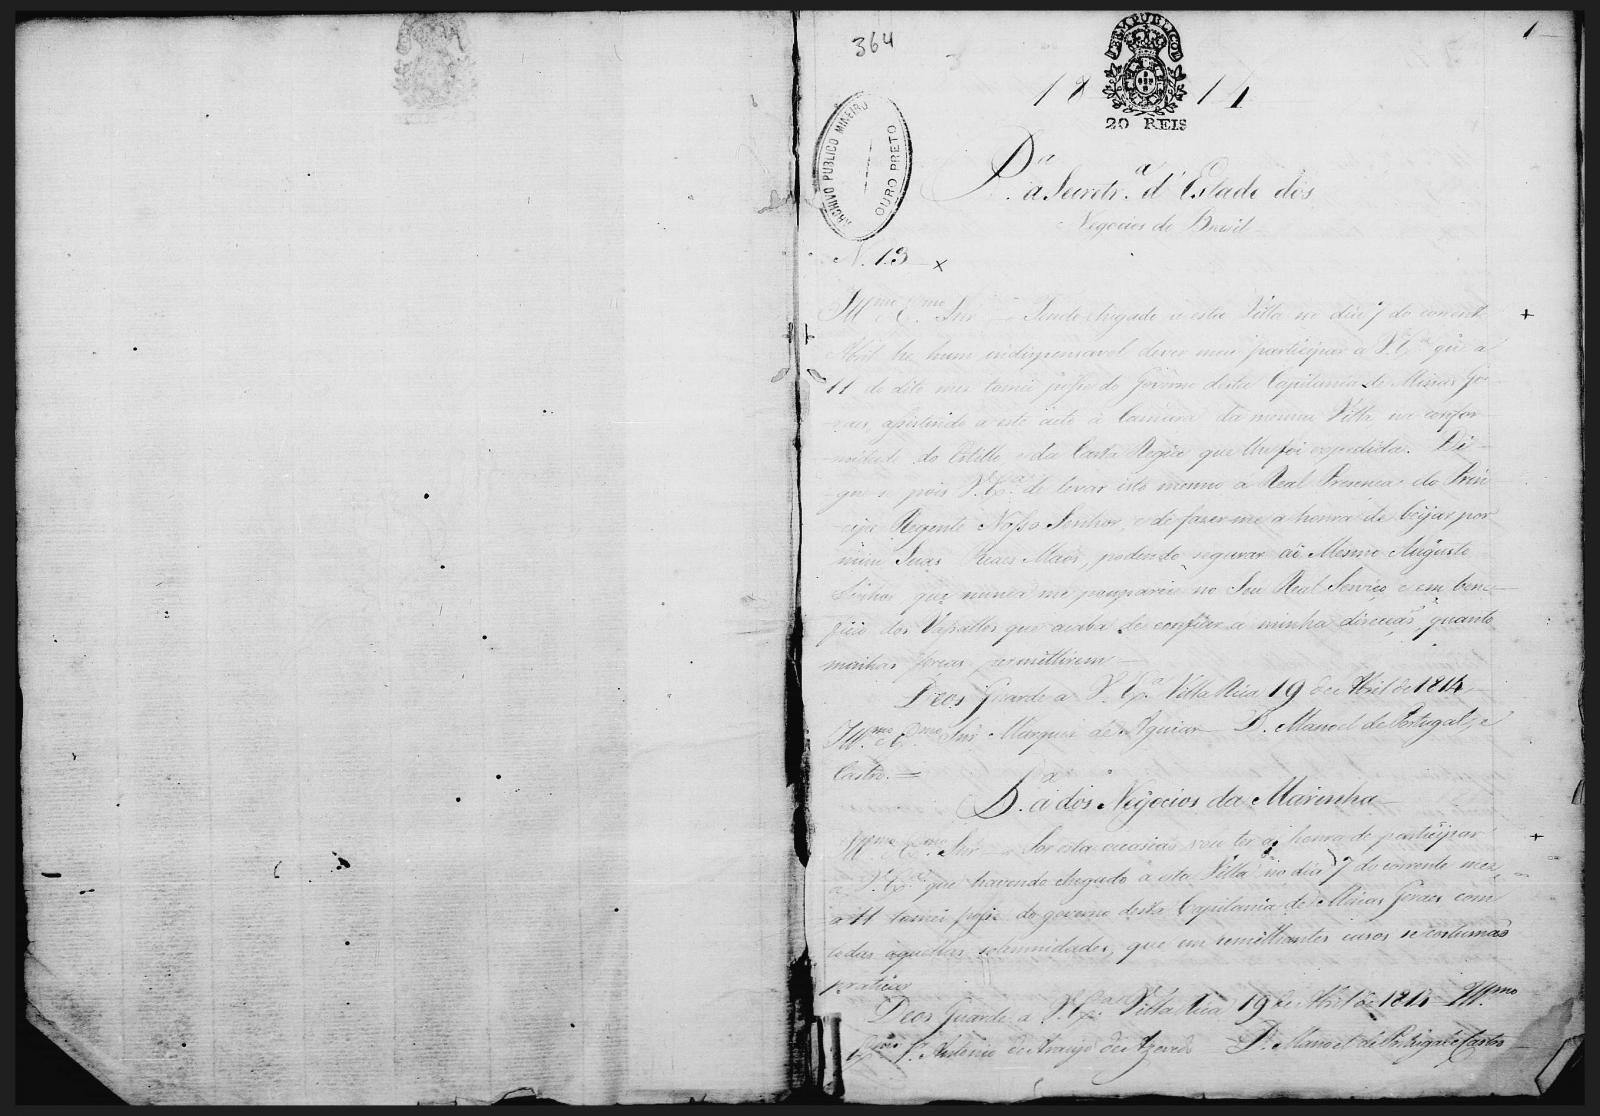 364
1
BEM PUBLICO
20 REIS
1814
ARCHIVO PUBLICO MINEIRO
OURO PRETO
P.ª a Secretr.ª d'Estado dos
Negocios do Brasil
N. 13
Ill.mo e Ex.mo Snr Tendo chegado a esta Villa no dia 7 do corrente
Abril he hum indispensavel dever meu participar a V. Ex.ª que a
11 do dito mez tomei posse do Governo desta Capitania de Minas Ge-
raes, assistindo a este acto a Camara da mesma Villa na confor-
midade do Estillo e da Carta Regia que lhe foi expedida. Di-
gne-se pois V. Ex.ª de levar isto mesmo a Real Presença do Prin-
cipe Regente Nosso Senhor, e de fazer me a honra de beijar por
mim Suas Reaes Maõs, podendo segurar ao Mesmo Augusto
Senhor que nunca me pouparei no Seu Real Serviço e em bene-
ficio dos Vassallos que acaba de confiar a minha direcçaõ, quanto
minhas forças permittirem
Deos Guarde a V. Ex.ª Villa Rica 19 de Abril de 1814
Ill.mo e Ex.mo Snr Marquez de Aguiar D. Manoel de Portugal, e
Castro.=
P.ª a dos Negocios da Marinha
Ill.mo e Ex.mo Snr Por esta occasiaõ vou ter a honra de participar
a V. Ex.ª que havendo chegado a esta Villa no dia 7 do corrente mez,
a 11 tomei posse do governo desta Capitania de Minas Geraes com
todas aquellas solemnidades, que em semilhantes casos se costumaõ
praticar
Deos Guarde a V. Ex.ª Villa Rica 19 de Abril de 1814 Ill.mo
Ex.mo Sr. Antonio de Araujo de Azevedo D. Manoel de Portugal e Castro